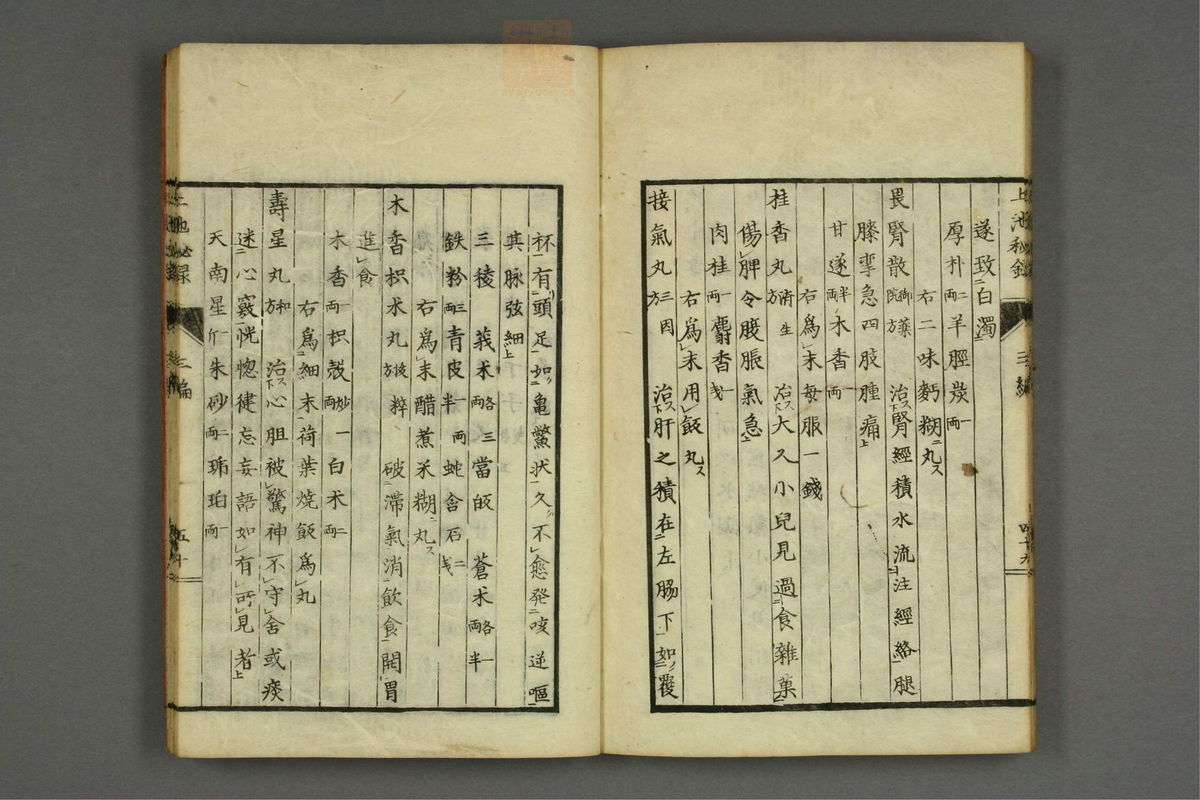 上池秘錄 三編 四十九
遂致白濁
厚朴二両 羊脛炭一両
右二味麪糊丸
畏腎散御藥院方 治腎經積水流注經絡腿
膝攣急四肢腫痛
甘遂半両 木香一両
右爲末每服一錢
桂香丸済生方 治大人小兒見過食雜菓
傷脾令腹脹氣急
肉桂一両 麝香一戋
右爲末用飯丸
接氣丸三因方 治肝之積在左脇下如覆
杯有頭足如亀鱉状久不愈発咳逆嘔
其脉弦細
三稜 莪朮各三両 當皈 蒼朮各一両半
鉄粉三両 青皮一両半 蛇含石二戋
右爲末醋煮米糊丸
木香枳朮丸 破滞氣消飲食開胃
進食
木香一両 枳殻炒一両 白朮二両
右爲細末荷葉燒飯爲丸
壽星丸和方 治心胆被驚神不守舍或痰
迷心竅恍惚健忘妄語如有所見者
天南星一斤 朱砂二両 琥珀一両
三編 五十